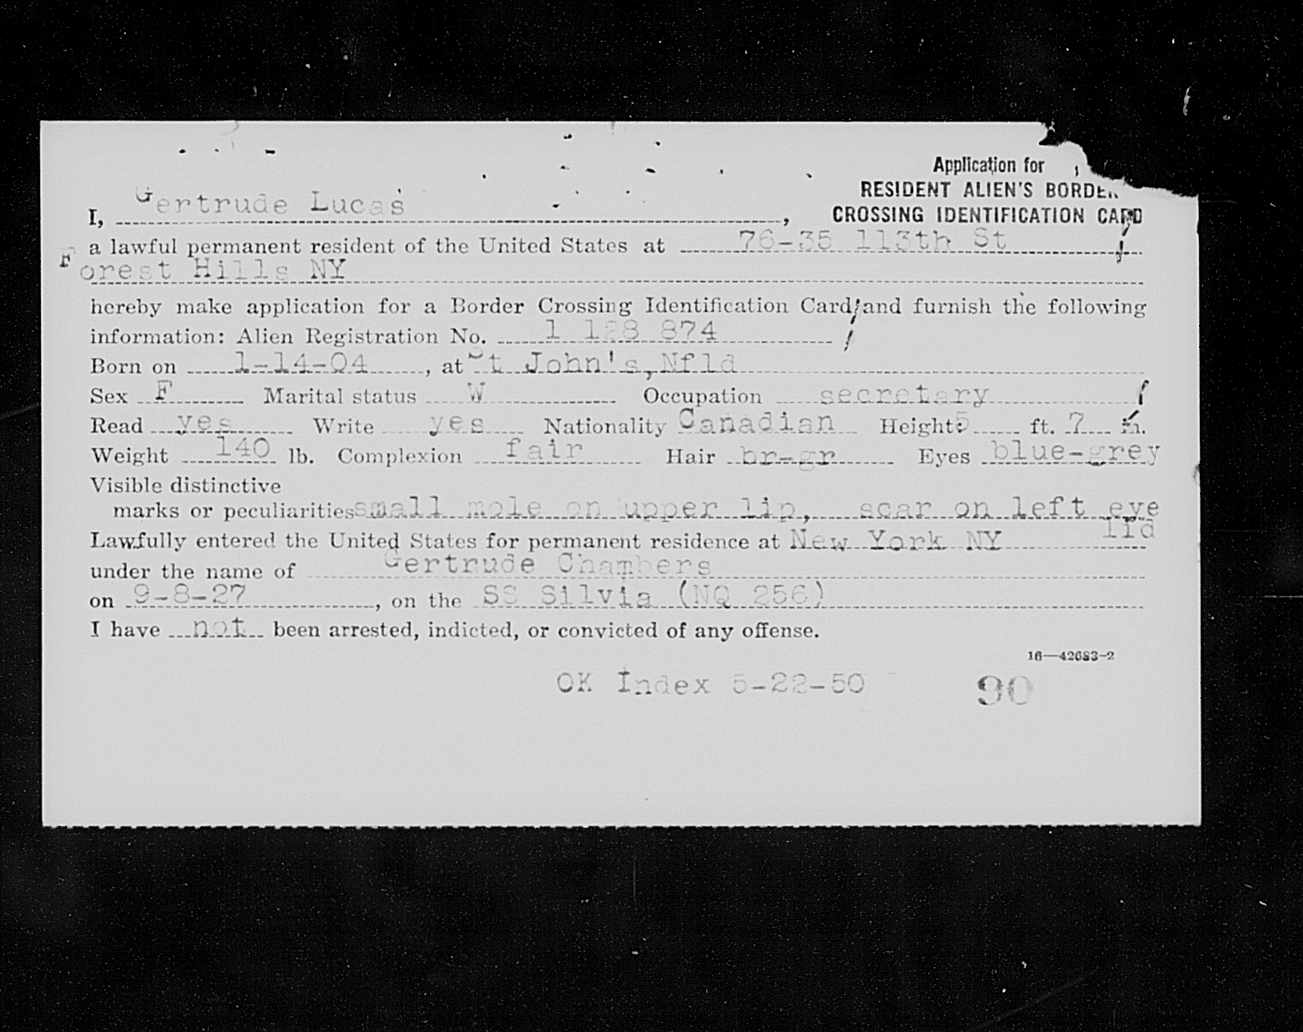 Application for
RESIDENT ALIEN'S BORDER
CROSSING IDENTIFICATION CARD
I, Gertrude Lucas,
a lawful permanent resident of the United States at 76-35 113th St
Forest Hills NY
hereby make application for a Border Crossing Identification Card and furnish the following
information: Alien Registration No. 1 128 874
Born on 1-14-04, at St John's, Nfld
Sex F Marital status W Occupation secretary
Read yes Write yes Nationality Canadian Height 5 ft. 7 in.
Weight 140 lb. Complexion fair Hair br-gr Eyes blue-grey
Visible distinctive
marks or peculiarities small mole on upper lip, scar on left eye
lid
Lawfully entered the United States for permanent residence at New York NY
under the name of Gertrude Chambers
on 9-8-27, on the SS Silvia (NQ 256)
I have not been arrested, indicted, or convicted of any offense.
16—42683-2
OK Index 5-22-50 90